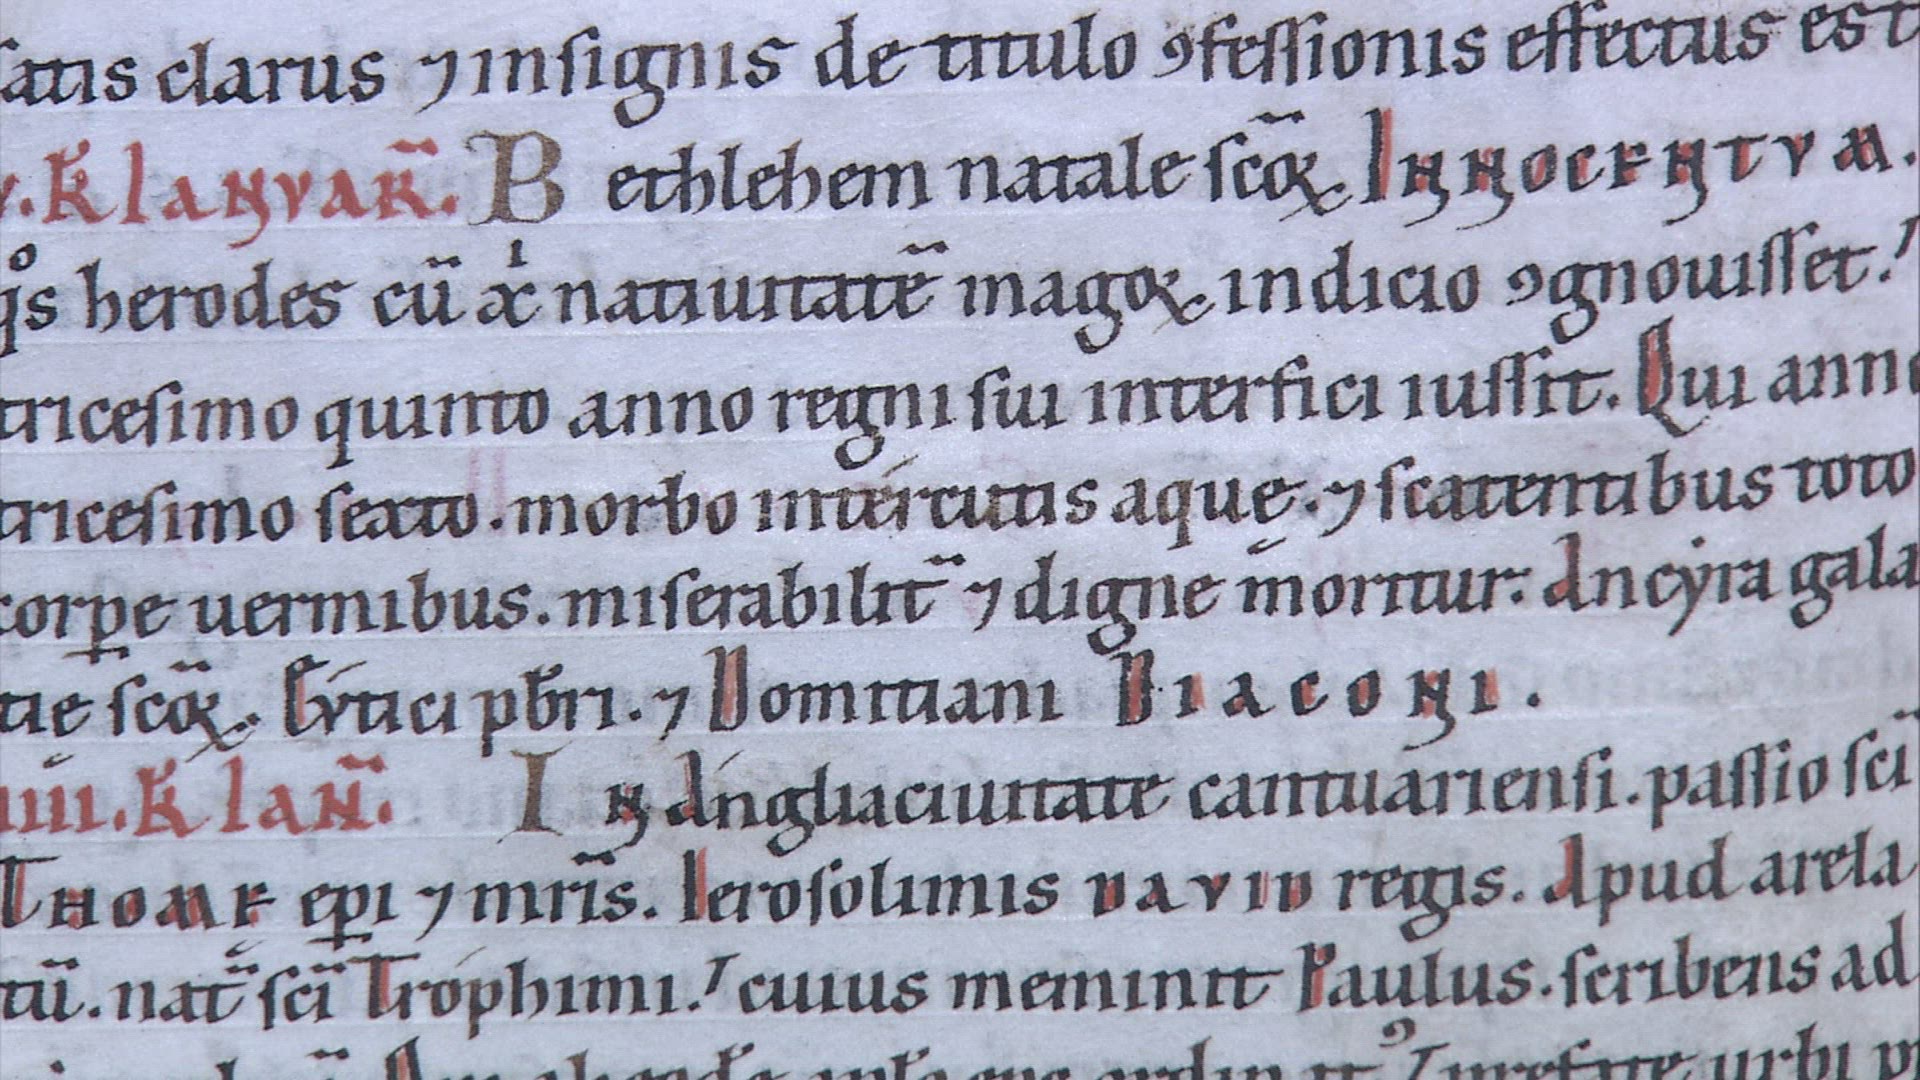 satis clarus ⁊ insignis de titulo ꝯfessionis effectus est
v. K̄l ianuar̄. Bethlehem natale sc̄oꝝ. Innocentum.
qͦs herodes cū xͥ natiuitatē magoꝝ indicio ꝯgnouisset.
tricesimo quinto anno regni sui interfici iussit. Qui anno
tricesimo sexto. morbo intercutis aquę. ⁊ scatentibus toto
corꝑe uermibus. miserabilit̄ ⁊ digne moritur. Ancyra gala
tię sc̄oꝝ. Eytici pb̄ri. ⁊ Domitiani Diaconi.
iiii. K̄l ian̄. In Anglia ciuitate cantuariensi. passio sc̄i
Thomę ep̄i ⁊ mr̄is. Ierosolimis Dauid regis. Apud arela
tū. nat̄ sc̄i Trophimi. cuius meminit Paulus. scribens ad